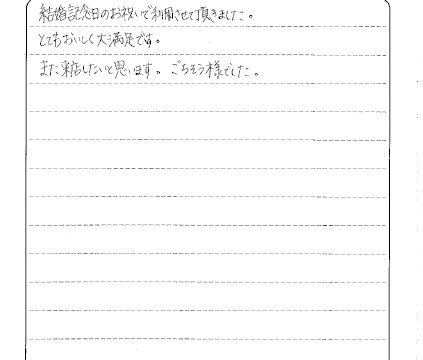 結婚記念日のお祝いで利用させて頂きました。
とてもおいしく大満足です。
また来店したいと思います。ごちそう様でした。